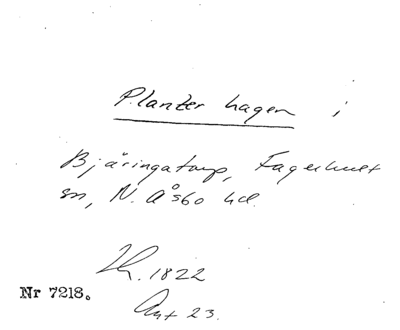 Planter hagen i
Bjäringatorp, Fagerhult
sn, N. Åsbo hd.
1822
Nr 7218.
Akt 23.